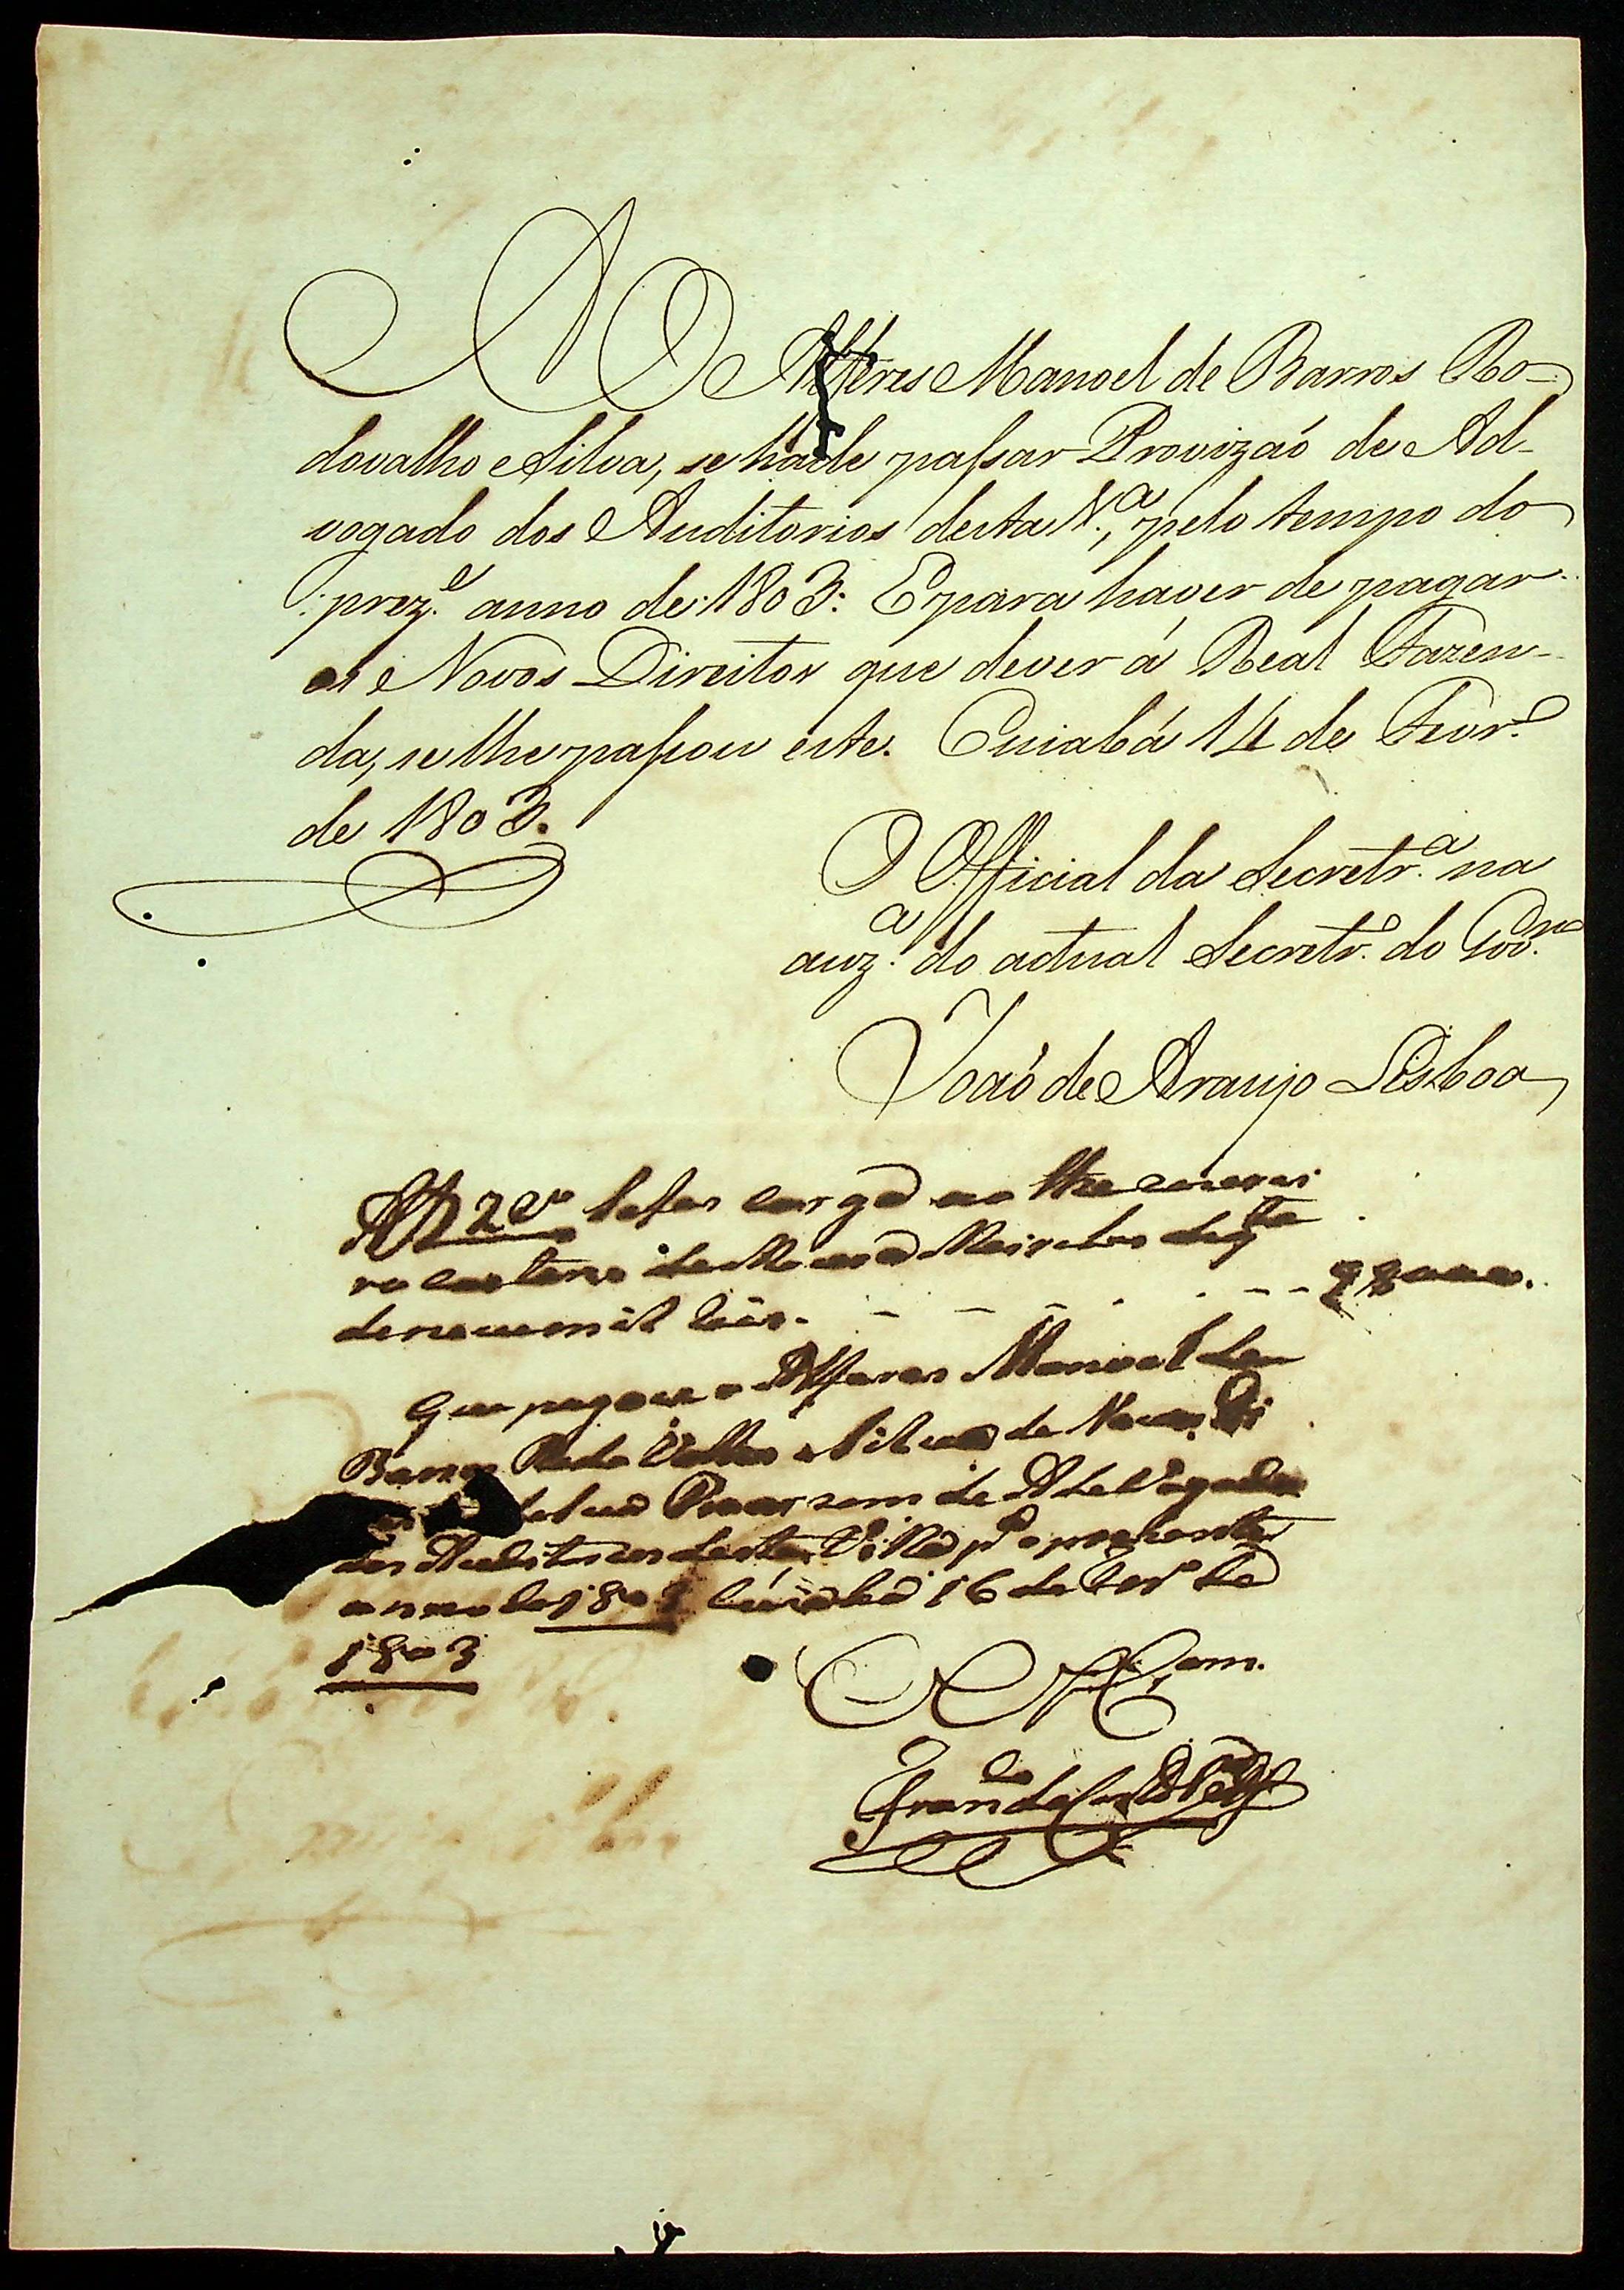 Ao Alféres Manoel de Barros Ro-
dovalho e Silva, se háde paſsar Provizaó de Ad-
vogado dos Auditorios desta V.ª, pelo tempo do
prez.e anno de 1803: E para haver de pagar
os Novos Direitos que dever á Real Fazen-
da, se lhe paſsou este. Cuiabá 14 de Fevr.º
de 1803.
O Official da Secretr.ª na
auz.ª do actual Secretr.º do Gov.no
Joaó de Araujo Lisboa
A f 2 vº ficaõ carg.do ao Thezourei
ro Caetano de
de nove mil reis. 9$000.
Que pagou o Alferes Manoel de
Barros Rodo Valho e Silva de Novos Di
de sua Provizam de Adevogado
dos Auditorios desta Villa pº o prezente
anno de 1803 Cuiabá 16 de Fevrº de
1803